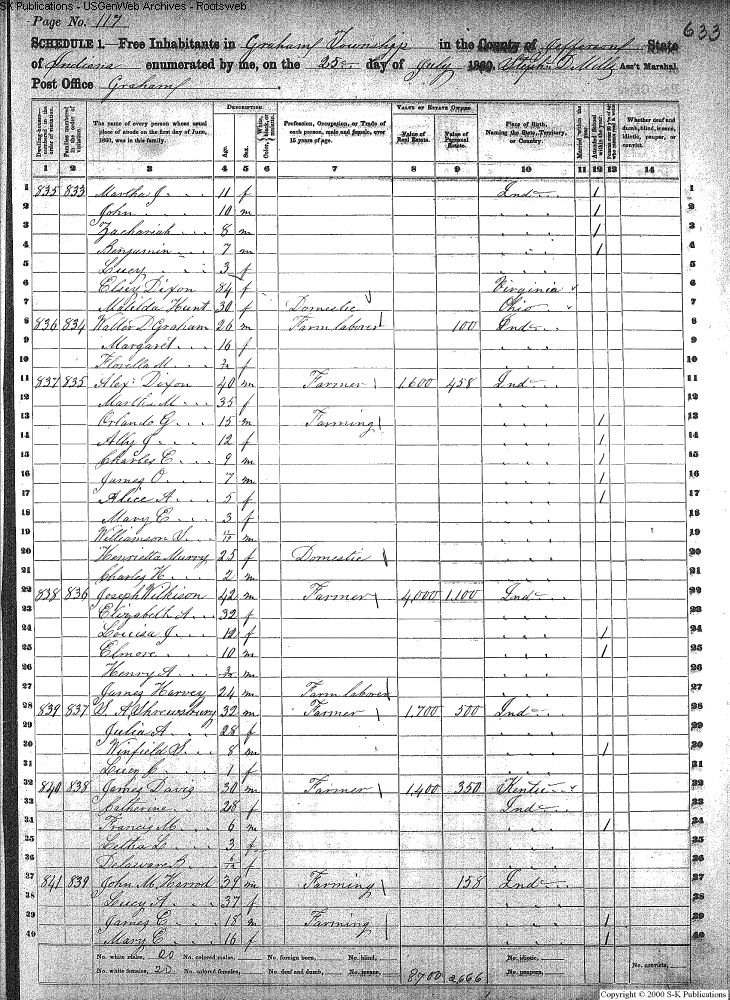 SK Publications - USGenWeb Archives - Rootsweb
Page No. 117
633
SCHEDULE 1.—Free Inhabitants in Graham Township in the County of Jefferson State
of Indiana enumerated by me, on the 25 day of July 1860. Ass't Marshal.
Post Office Graham
DESCRIPTION. VALUE OF ESTATE OWNED.
Dwelling-houses—numbered in the order of visitation. Families numbered in the order of visitation. The name of every person whose usual place of abode on the first day of June, 1860, was in this family. Age. Sex. Color, Profession, Occupation, or Trade of each person, male and female, over 15 years of age. Value of Real Estate. Value of Personal Estate. Place of Birth, Naming the State, Territory, or Country. Married within the year. Attended School within the year. Whether deaf and dumb, blind, insane, idiotic, pauper, or convict.
1 2 3 4 5 6 7 8 9 10 11 12 13 14
1 835 833 Martha J 11 f Ind 1 1
2 John 10 m 1 2
3 Zachariah 8 m 1 3
4 Benjamin 7 m 1 4
5 Lucy 3 f 5
6 Elsey Dixon 84 f Virginia 6
7 Matilda Hunt 30 f Domestic Ohio 7
8 836 834 Walter D Graham 26 m Farm laborer 100 Ind 8
9 Margaret 16 f 9
10 Florella M f 10
11 837 835 Alex Dixon 40 m Farmer 1,600 458 Ind 11
12 Martha M 35 f 12
13 Orlando G 15 m Farming 1 13
14 Ally J 12 f 1 14
15 Charles E 9 m 1 15
16 James O 7 m 1 16
17 Alice A 5 f 1 17
18 Mary E 3 f 18
19 Williamson S m 19
20 Henrietta Murry 25 f Domestic 20
21 Charles H 2 m 21
22 838 836 Joseph Wilkison 42 m Farmer 4,000 1,100 Ind 22
23 Elizabeth A 32 f 23
24 Louisa J 12 f 1 24
25 Elmore 10 m 1 25
26 Henry A m 26
27 James Harvey 24 m Farm laborer 27
28 839 837 S. A Shrewsbury 32 m Farmer 1,700 500 Ind 28
29 Julia A 28 f 29
30 Winfield S 8 m 1 30
31 Lucy 1 f 31
32 840 838 James Davis 30 m Farmer 1,400 350 32
33 Catherine 28 f Ind 33
34 Francis M 6 m 1 34
35 Letha L 3 f 35
36 Delaware B f 36
37 841 839 John M Harrod 39 m Farming 158 Ind 37
38 Lucy A 37 f 38
39 James E 18 m Farming 1 39
40 Mary E 16 f 1 40
No. white males, 20 No. colored males, No. foreign born, No. blind, No. idiotic, No. convicts,
No. white females, 20 No. colored females, No. deaf and dumb, No. insane, 8700 2,666 No. paupers,
Copyright © 2000 S-K Publications